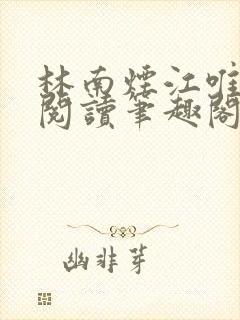 林南煙江唯
閱讀筆趣閣
幽非芽